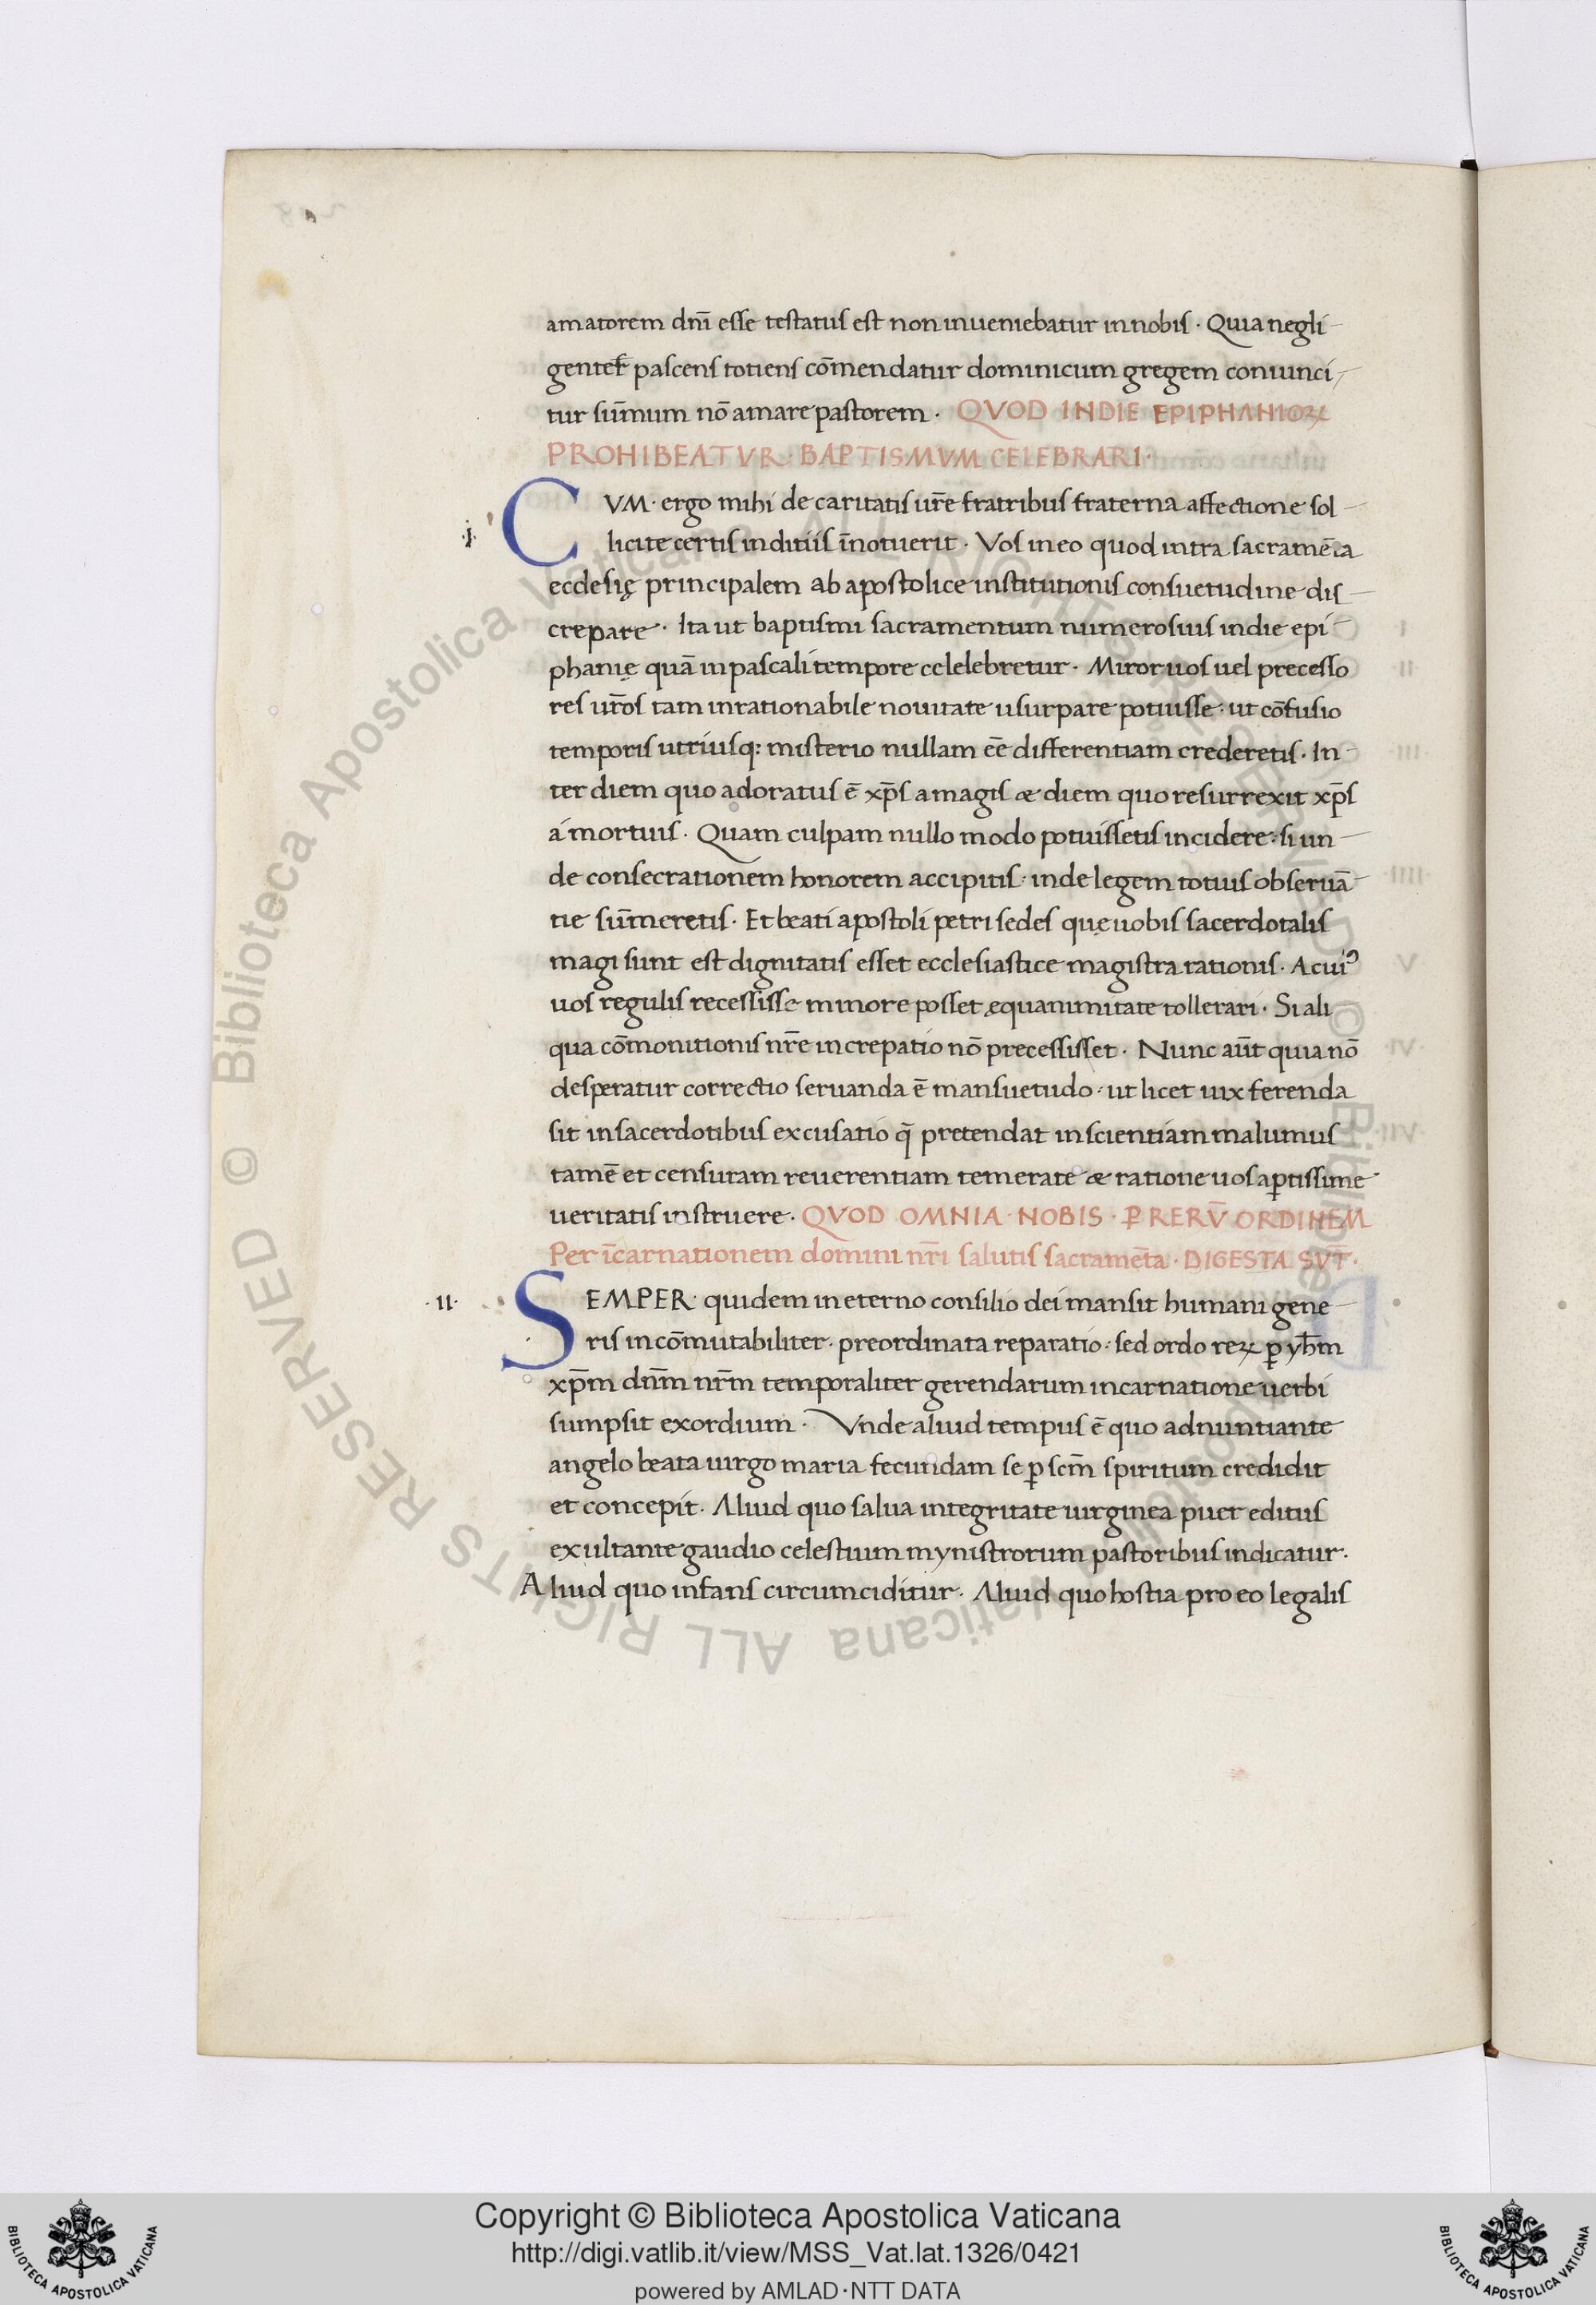 amatorem dnī esse testatus est non inueniebatur in nobis · Quia negli-
genter pascens totiens cōmendatur dominicum gregem conuinci-
tur sūmum nō amare pastorem · QVOD IN DIE EPIPHANIOꝜ
PROHIBEATVR · BAPTISMVM CELEBRARI ·
·I· CVM · ergo mihi de caritatis ur̄e fratribus fraterna affectione sol-
licite certis inditiis īnotuerit · Vos in eo quod intra sacramēta
ecclesię principalem ab apostolice institutionis consuetudine dis-
crepare · Ita ut baptismi sacramentum numerosius in die epi-
phanię quā in pascali tempore celelebretur · Miror uos uel precesso
res ur̄os tam inrationabile nouitate usurpare potuisse · ut cōfusio
temporis utriusq: misterio nullam eē differentiam crederetis · In-
ter diem quo adoratus ē xp̄s a magis æ diem quo resurrexit xp̄s
a mortuis · Quam culpam nullo modo potuissetis incidere · si un-
de consecrationem honorem accipitis · inde legem totius obseruā-
tie sūmeretis · Et beati apostoli petri sedes quę uobis sacerdotalis
magi sunt est dignitatis esset ecclesiastice magistra rationis · A cuiꝰ
uos regulis recessisse minore posset æquanimitate tollerari · Si ali
qua cōmonitionis nr̄e increpatio nō precessisset · Nunc aūt quia nō
desperatur correctio seruanda ē mansuetudo · ut licet uix ferenda
sit in sacerdotibus excusatio q̄ pretendat inscientiam malumus
tamē et censuram reuerentiam temerate æ ratione uos aꝑtissime
ueritatis instruere · QVOD OMNIA · NOBIS · Ꝑ RERV̄ ORDINEM
Per īcarnationem domini nr̄i salutis sacramēta · DIGESTA SVT̄ ·
·II· SEMPER · quidem in eterno consilio dei mansit humani gene-
ris incōmutabiliter · preordinata reparatio · sed ordo reꝝ ꝑ yhm̄
xp̄m dnm̄ nr̄m temporaliter gerendarum incarnatione uerbi
sumpsit exordium · Vnde aliud tempus ē quo adnuntiante
angelo beata uirgo maria fecundam se ꝑ scm̄ spiritum credidit
et concepit · Aliud quo salua integritate uirginea puer editus
exultante gaudio celestium mynistrorum pastoribus indicatur ·
Aliud quo infans circumciditur · Aliud quo hostia pro eo legalis
Copyright © Biblioteca Apostolica Vaticana
http://digi.vatlib.it/view/MSS_Vat.lat.1326/0421
powered by AMLAD·NTT DATA
BIBLIOTECA APOSTOLICA VATICANA
BIBLIOTECA APOSTOLICA VATICANA
© Biblioteca Apostolica Vaticana ALL RIGHTS RESERVED © Biblioteca Apostolica Vaticana ALL RIGHTS RESERVED